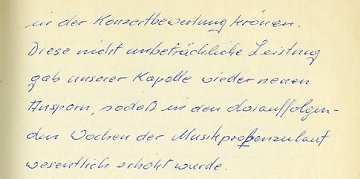 in der Konzertbewertung krönen.
Diese nicht unbeträchtliche Leistung
gab unserer Kapelle wieder neuen
Ansporn, sodaß in den darauffolgen-
den Wochen der Musikprobenzulauf
wesentlich erhöht wurde.